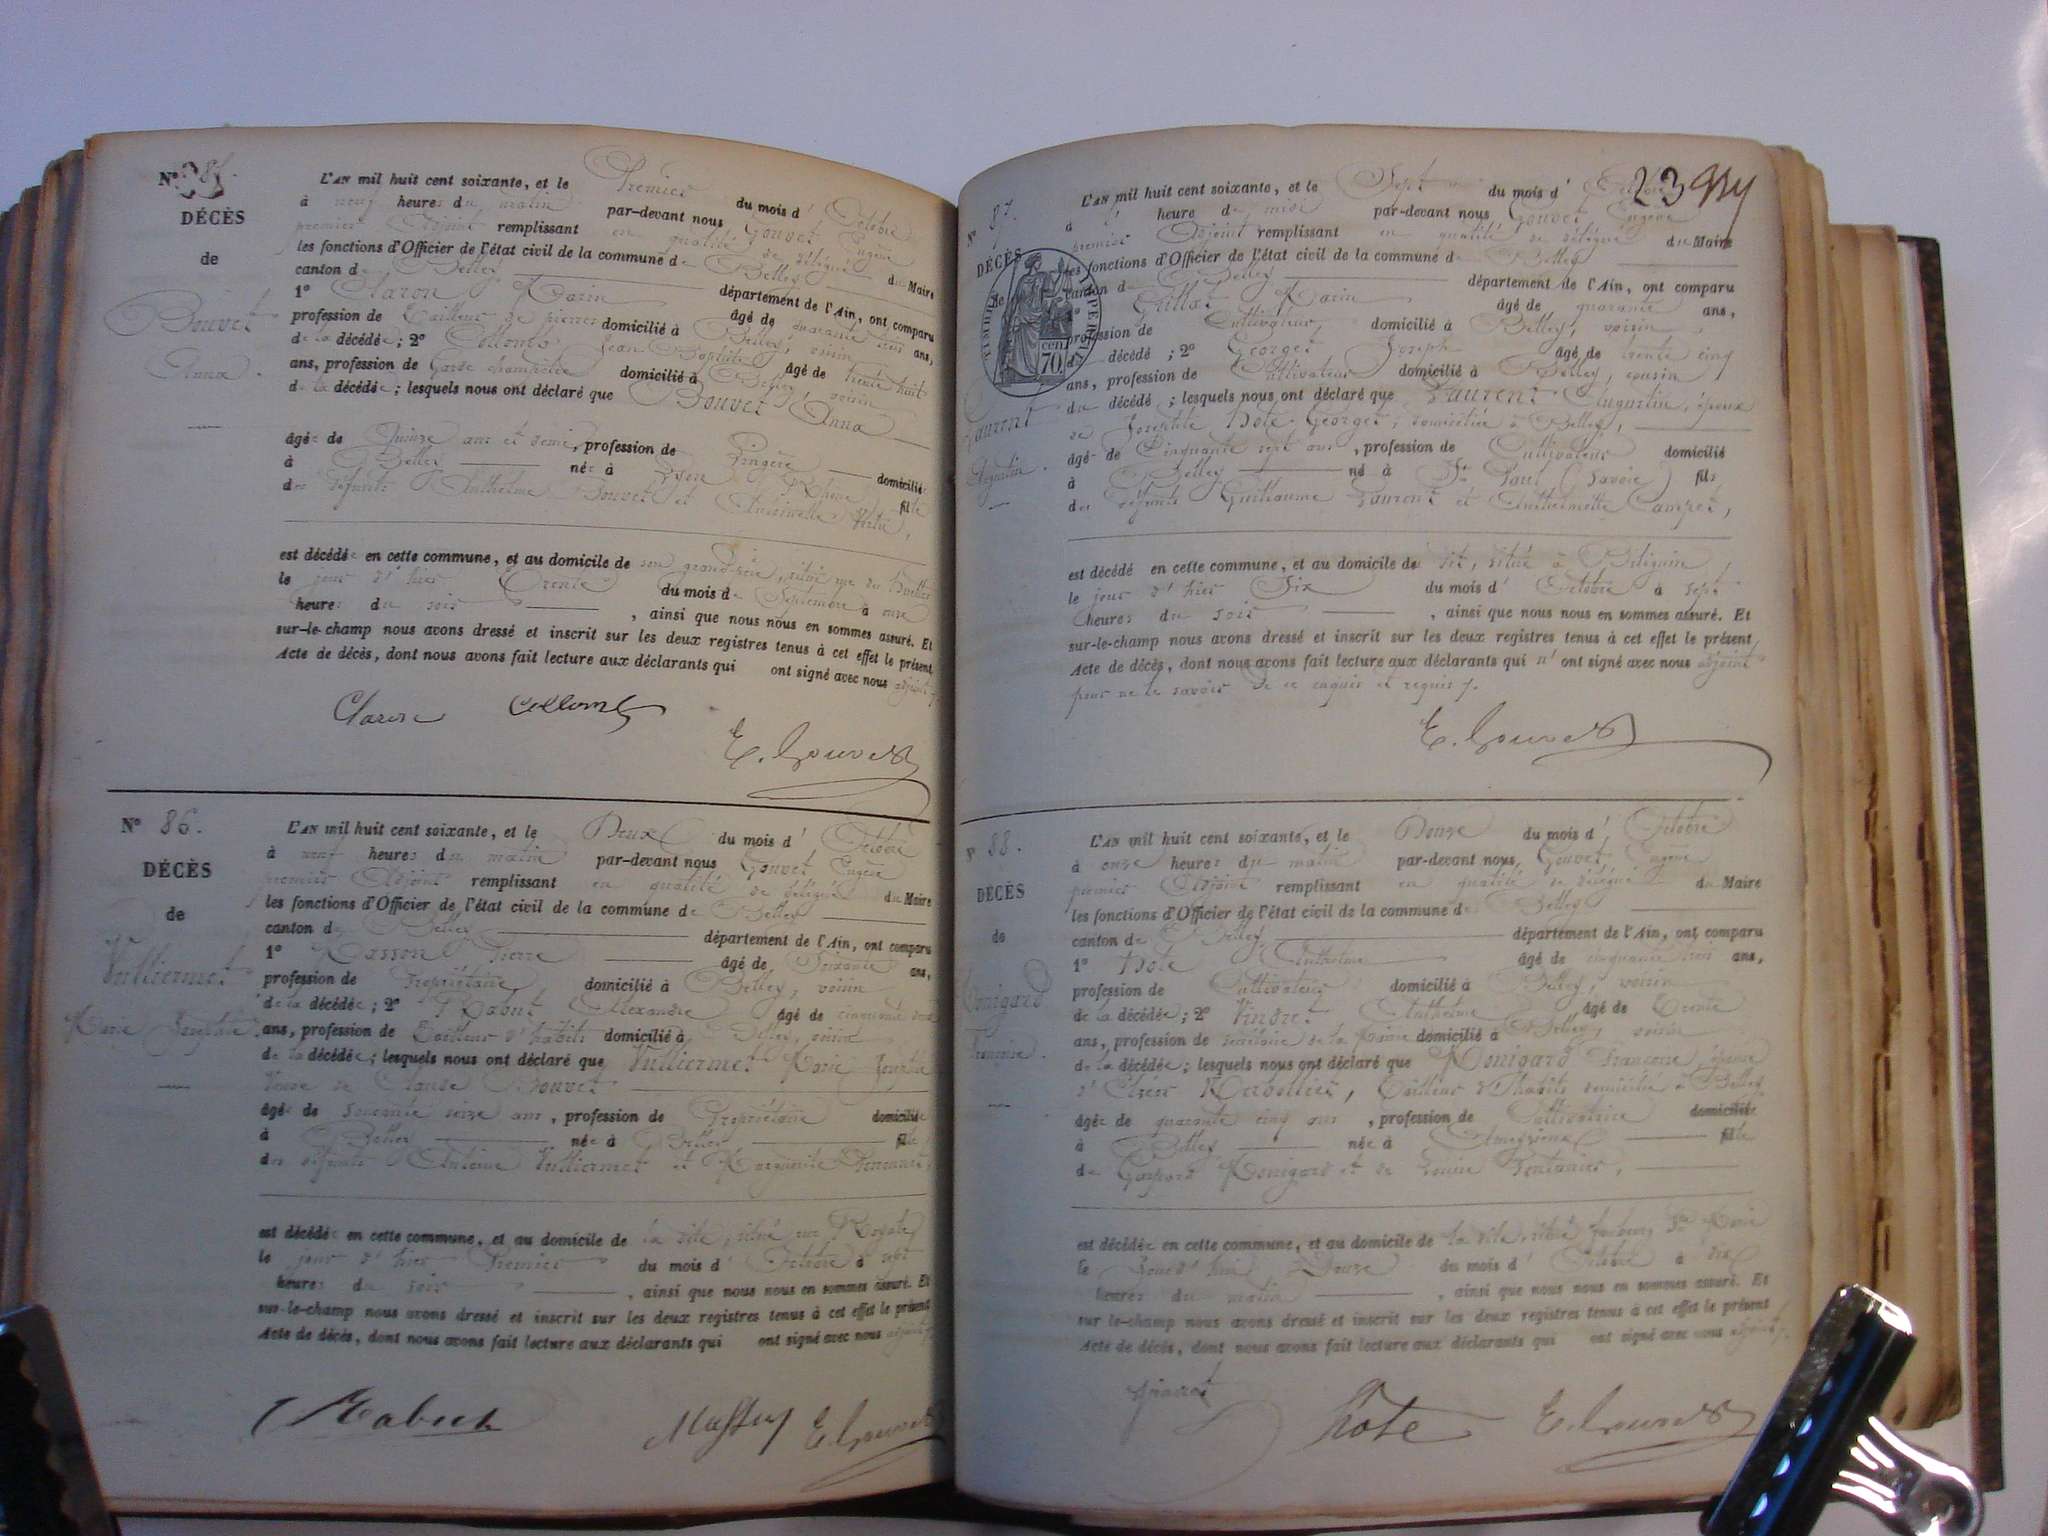 N° 85.
DÉCÈS
de
Bouvet
Anna.
L'AN mil huit cent soixante, et le Premier du mois d'Octobre
à neuf heures du matin par-devant nous Gouvet Eugène
premier Adjoint remplissant en qualité de délégué du Maire
les fonctions d'Officier de l'état civil de la commune de Belley
canton de Belley département de l'Ain, ont comparu
1° Claron Marin âgé de quarante ans,
profession de Tailleur de pierres domicilié à Belley, voisin
de la décédée; 2° Collomb Jean Baptiste âgé de trente huit
ans, profession de Garde champêtre domicilié à Belley, voisin
de la décédée; lesquels nous ont déclaré que Bouvet Anna
âgée de Quinze ans et demi, profession de Lingère domiciliée
à Belley née à Lyon (Rhône) fille
des défunts Anthelme Bouvet et Antoinette
est décédée en cette commune, et au domicile de son grand-père, situé rue du
le jour d'hier Trente du mois de Septembre à onze
heures du soir, ainsi que nous nous en sommes assuré. Et
sur-le-champ nous avons dressé et inscrit sur les deux registres tenus à cet effet le présent
Acte de décès, dont nous avons fait lecture aux déclarants qui ont signé avec nous adjoint
Claron Collomb
E. Gouvet
N° 86.
DÉCÈS
de
Vulliermet
Marie Josephte
L'AN mil huit cent soixante, et le Deux du mois d'Octobre
à neuf heures du matin par-devant nous Gouvet Eugène
premier Adjoint remplissant en qualité de délégué du Maire
les fonctions d'Officier de l'état civil de la commune de Belley
canton de Belley département de l'Ain, ont comparu
1° Masson Pierre âgé de Soixante ans,
profession de Propriétaire domicilié à Belley, voisin
de la décédée; 2° Rabut Alexandre âgé de cinquante deux
ans, profession de Tailleur d'habits domicilié à Belley, voisin
de la décédée; lesquels nous ont déclaré que Vulliermet Marie Josephte
Veuve de Claude Bouvet
âgée de soixante seize ans, profession de Propriétaire domiciliée
à Belley née à Belley fille
des défunts Antoine Vulliermet et Marguerite
est décédée en cette commune, et au domicile de la dite, situé rue Royale,
le jour d'hier Premier du mois d'Octobre à sept
heures du soir, ainsi que nous nous en sommes assuré. Et
sur-le-champ nous avons dressé et inscrit sur les deux registres tenus à cet effet le présent
Acte de décès, dont nous avons fait lecture aux déclarants qui ont signé avec nous adjoint
Rabut E. Gouvet
23
N° 87.
DÉCÈS
de
TIMBRE IMPERIAL
70 cen
Laurent
Augustin.
L'AN mil huit cent soixante, et le Sept du mois d'Octobre
à heure de midi par-devant nous Gouvet Eugène
premier Adjoint remplissant en qualité de délégué du Maire
les fonctions d'Officier de l'état civil de la commune de Belley
canton de Belley département de l'Ain, ont comparu
1° Marin âgé de quarante ans,
profession de Cultivateur, domicilié à Belley, voisin
du décédé; 2° Georget Joseph âgé de trente cinq
ans, profession de Cultivateur domicilié à Belley, cousin
du décédé; lesquels nous ont déclaré que Laurent Augustin, époux
de Josephte Hote-Georget, domiciliée à Belley,
âgé de Cinquante sept ans, profession de Cultivateur domicilié
à Belley né à St Paul (Savoie) fils
des défunts Guillaume Laurent et Anthelmette
est décédé en cette commune, et au domicile du dit, situé à
le jour d'hier Six du mois d'Octobre à sept
heures du soir, ainsi que nous nous en sommes assuré. Et
sur-le-champ nous avons dressé et inscrit sur les deux registres tenus à cet effet le présent
Acte de décès, dont nous avons fait lecture aux déclarants qui n'ont signé avec nous adjoint
pour ne le savoir de ce enquis et requis.
E. Gouvet
N° 88.
DÉCÈS
de
Monigard
Françoise.
L'AN mil huit cent soixante, et le Douze du mois d'Octobre
à onze heures du matin par-devant nous, Gouvet Eugène
premier Adjoint remplissant en qualité de délégué du Maire
les fonctions d'Officier de l'état civil de la commune de Belley
canton de Belley département de l'Ain, ont comparu
1° Hote Anthelme âgé de cinquante trois ans,
profession de Cultivateur domicilié à Belley, voisin
de la décédée; 2° Vindret Anthelme âgé de Trente
ans, profession de secrétaire de la Mairie domicilié à Belley, voisin
de la décédée; lesquels nous ont déclaré que Monigard Françoise, épouse
Tailleur d'habits domicilié à Belley,
âgée de quarante cinq ans, profession de Cultivatrice domiciliée
à Belley née à fille
de Gaspard Monigard et de Louise
est décédée en cette commune, et au domicile de la dite, situé faubourg St Marie
le jour d'hui Douze du mois d'Octobre à dix
heures du matin, ainsi que nous nous en sommes assuré. Et
sur-le-champ nous avons dressé et inscrit sur les deux registres tenus à cet effet le présent
Acte de décès, dont nous avons fait lecture aux déclarants qui ont signé avec nous adjoint
Vindret hote E. Gouvet